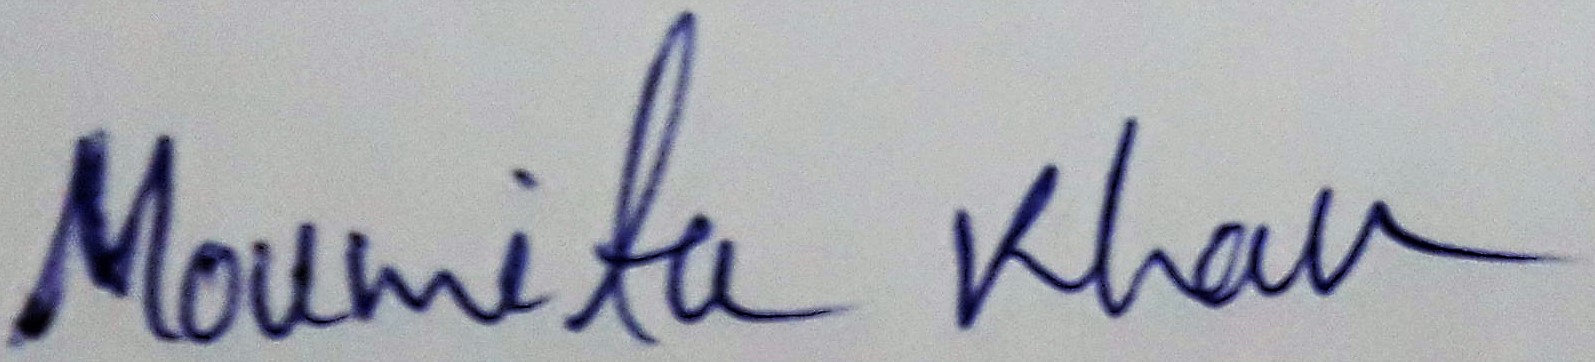 Moumita Khan